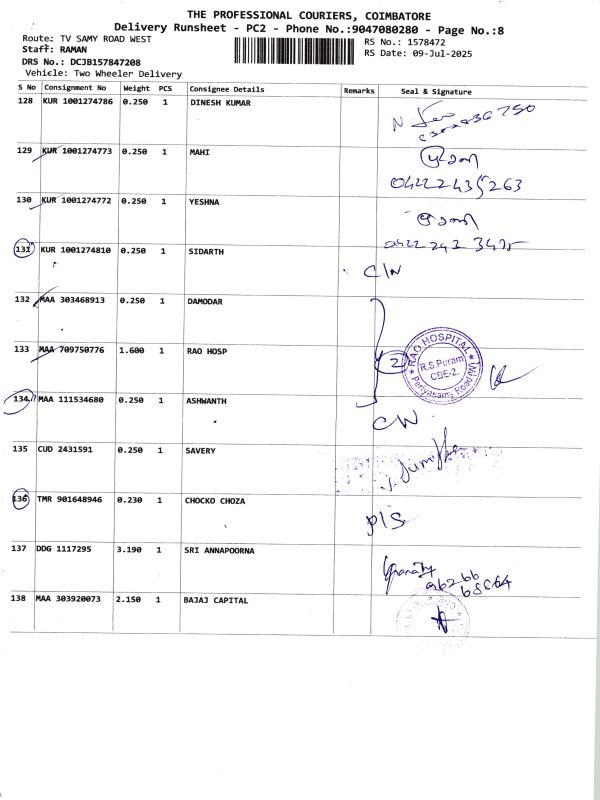 THE PROFESSIONAL COURIERS, COIMBATORE
Delivery Runsheet - PC2 - Phone No.:9047080280 - Page No.:8
Route: TV SAMY ROAD WEST
RS No.: 1578472
Staff: RAMAN
RS Date: 09-Jul-2025
DRS No.: DCJB157847208
Vehicle: Two Wheeler Delivery
S No Consignment No Weight PCS Consignee Details Remarks Seal & Signature
128 KUR 1001274786 0.250 1 DINESH KUMAR
129 KUR 1001274773 0.250 1 MAHI
0422 2435263
130 KUR 1001274772 0.250 1 YESHNA
0422 242 3475
131 KUR 1001274810 0.250 1 SIDARTH
C/N
132 MAA 303468913 0.250 1 DAMODAR
133 MAA 709750776 1.600 1 RAO HOSP
2
RAO HOSPITAL
R.S.Puram
CBE-2.
Periyasamy Road (W)
134 MAA 111534680 0.250 1 ASHWANTH
C/N
135 CUD 2431591 0.250 1 SAVERY
136 TMR 901648946 0.230 1 CHOCKO CHOZA
P/S
137 DDG 1117295 3.190 1 SRI ANNAPOORNA
138 MAA 303920073 2.150 1 BAJAJ CAPITAL